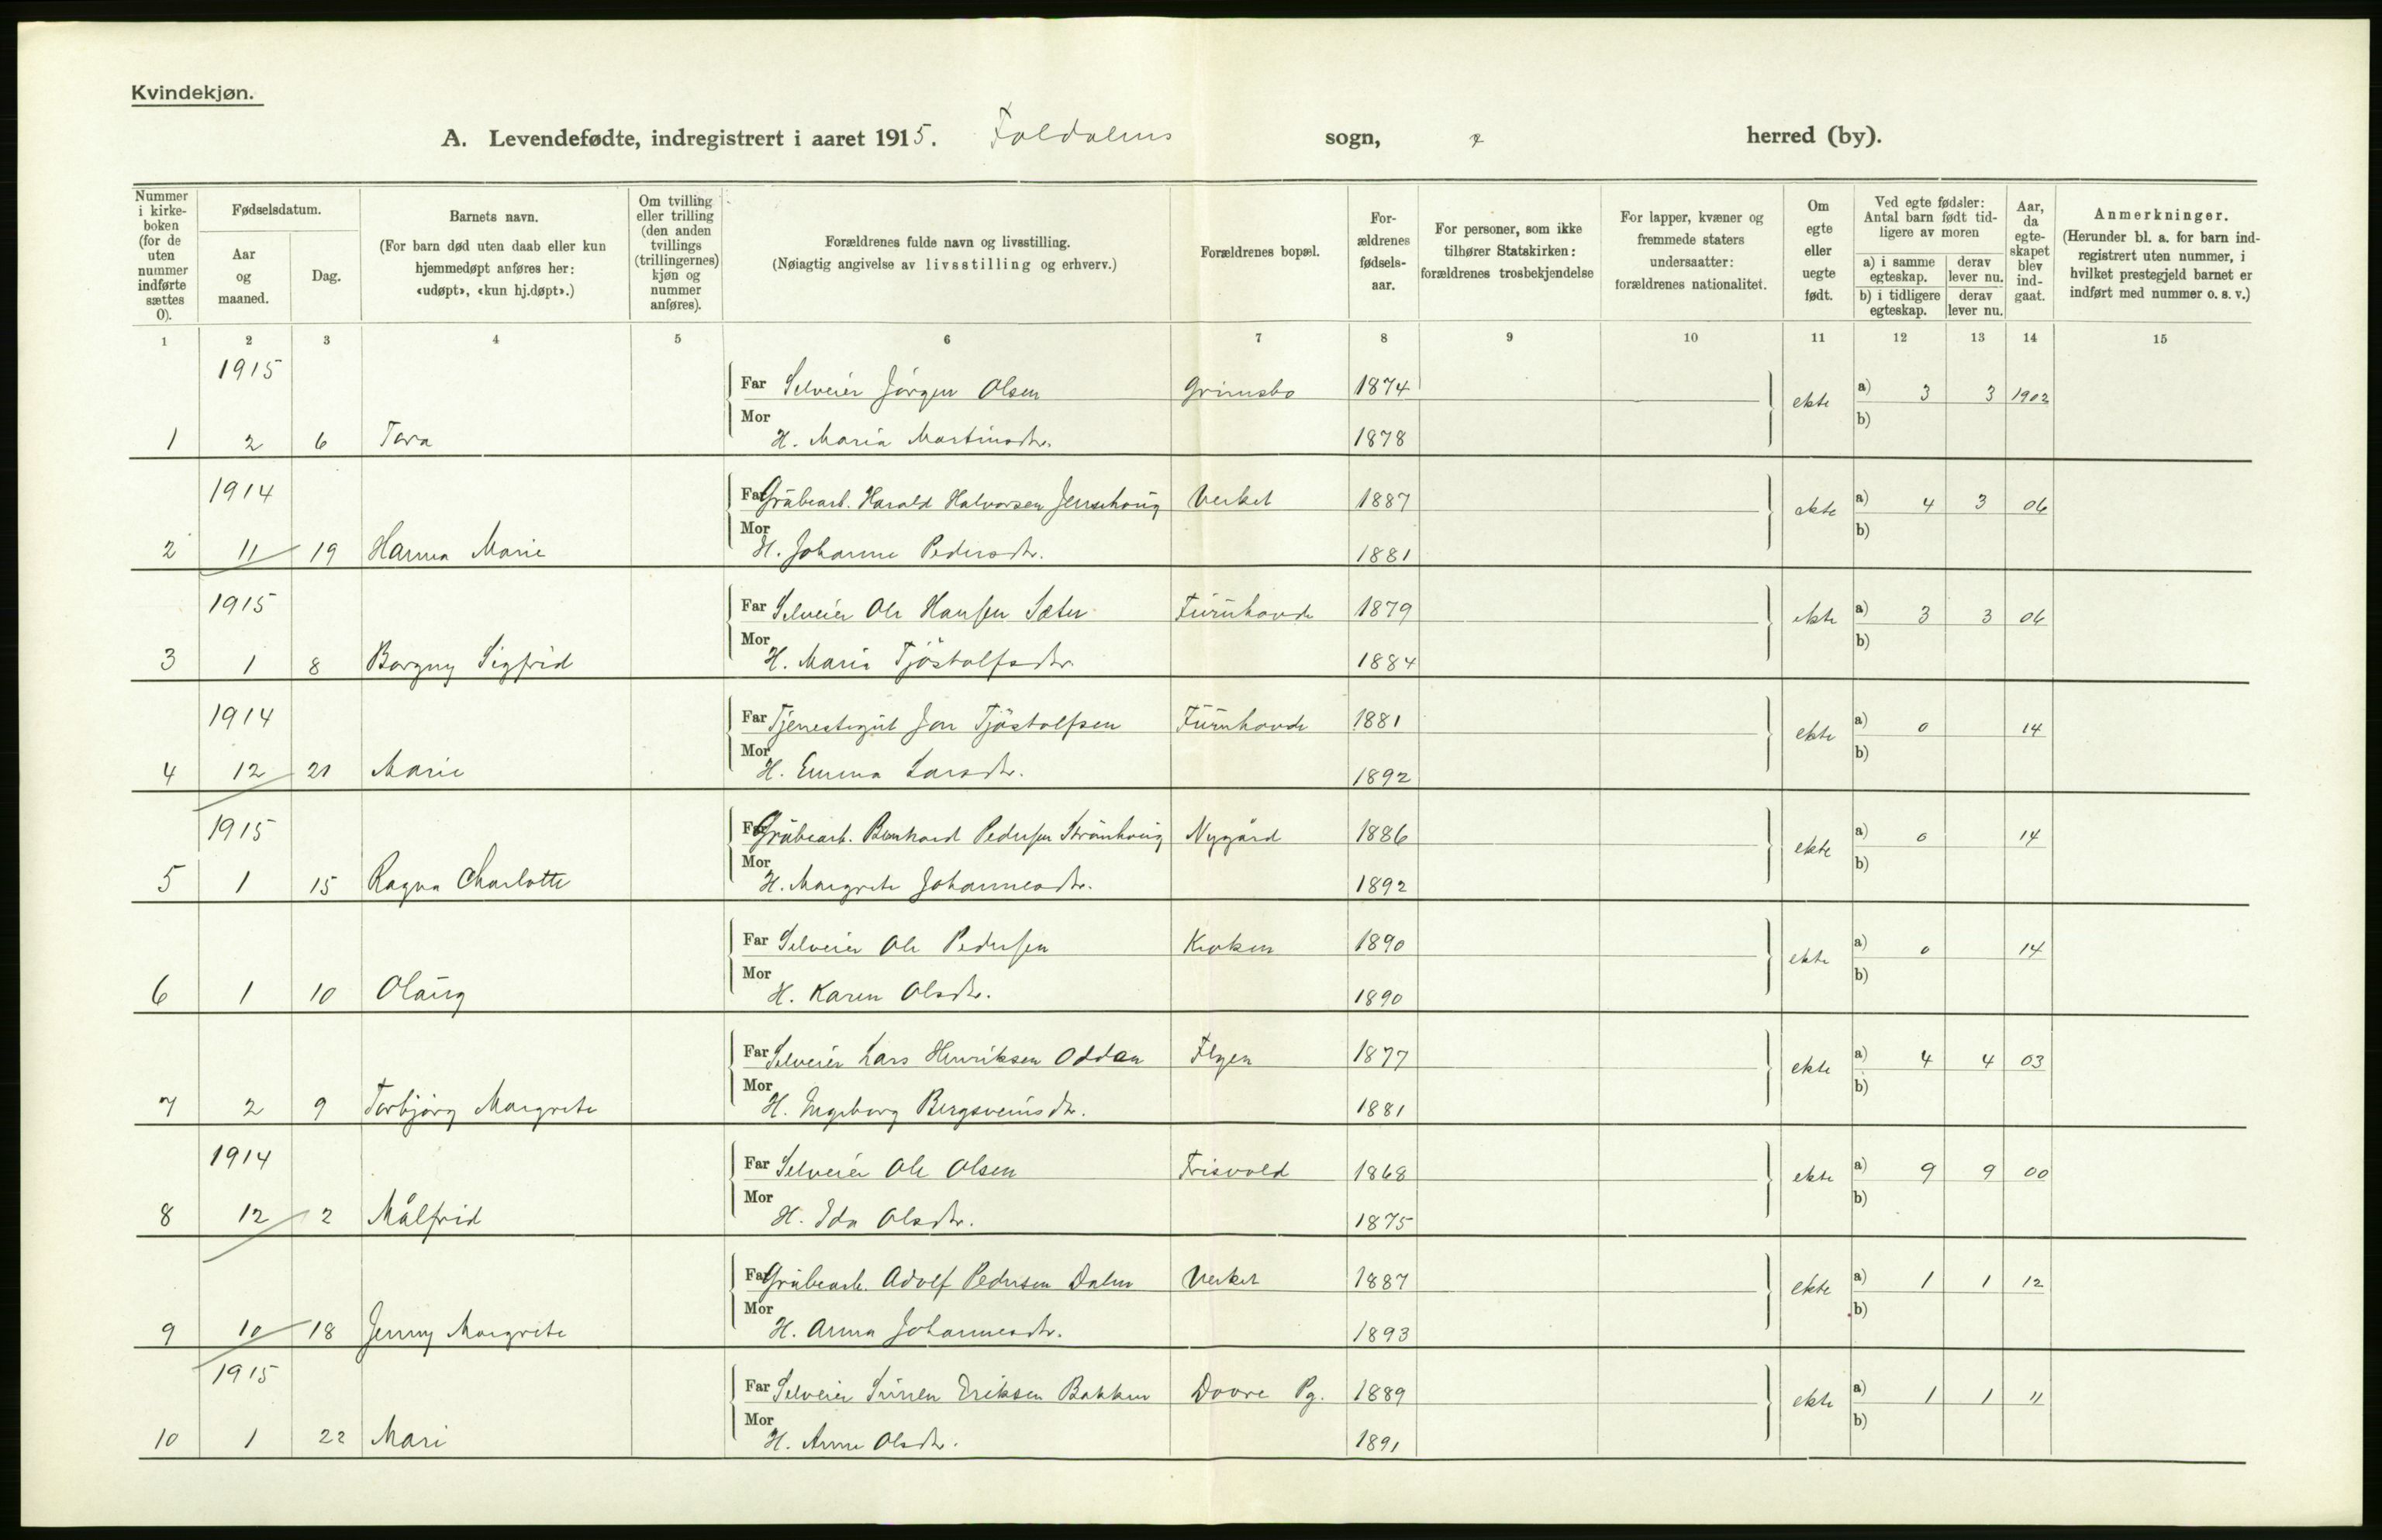 Kvindekjøn.
A. Levendefødte, indregistrert i aaret 1915. Foldalens sogn, herred (by).
Nummer i kirke-boken (for de uten nummer indførte sættes 0).
Fødselsdatum.
Aar og maaned.
Dag.
Barnets navn.
(For barn død uten daab eller kun hjemmedøpt anføres her: «udøpt», «kun hj.døpt».)
Om tvilling eller trilling (den anden tvillings (trillingernes) kjøn og nummer anføres).
Forældrenes fulde navn og livsstilling.
(Nøiagtig angivelse av livsstilling og erhverv.)
Forældrenes bopæl.
For-ældrenes fødsels-aar.
For personer, som ikke tilhører Statskirken: forældrenes trosbekjendelse
For lapper, kvæner og fremmede staters undersaatter: forældrenes nationalitet.
Om egte eller uegte født.
Ved egte fødsler: Antal barn født tid-ligere av moren
a) i samme egteskap.
derav lever nu.
b) i tidligere egteskap.
derav lever nu.
Aar, da egte-skapet blev ind-gaat.
Anmerkninger.
(Herunder bl. a. for barn ind-registrert uten nummer, i hvilket prestegjeld barnet er indført med nummer o. s. v.)
1 2 3 4 5 6 7 8 9 10 11 12 13 14 15
1915
Far Selveier Jörgen Olsen Grimsbo 1874 ekte a) 3 3 1902
Mor b)
1 2 6 Tora H. Maria Martinsdtr. 1878
1914
Far Grübearb. Harald Halvorsen Verket 1887 ekte a) 4 3 06
Mor b)
2 11 19 Hanna Marie H. Johanne Pedersdtr. 1881
1915
Far Selveier Ole Hansen Sæter Furuhovde 1879 ekte a) 3 3 06
Mor b)
3 1 8 Borgny Sigfrid H. Maria Tjöstolfsdtr. 1884
1914
Far Tjenestegut Jon Tjöstolfsen Furuhovde 1881 ekte a) 0 14
Mor b)
4 12 21 Marie H. Emma Larsdtr. 1892
1915
Far Grübearb. Bernhard Pedersen Nygård 1886 ekte a) 0 14
Mor b)
5 1 15 Ragna Charlotte H. Margrete Johannesdtr. 1892
Far Selveier Ole Pedersen Kroken 1890 ekte a) 0 14
Mor b)
6 1 10 Olaug H. Karen Olsdtr. 1890
Far Selveier Lars Henriksen Oddan Flyen 1877 ekte a) 4 4 03
Mor b)
7 2 9 Torbjörg Margrete H. Ingeborg Bergsveinsdtr. 1881
1914
Far Selveier Ole Olsen Frisvold 1868 ekte a) 9 9 00
Mor b)
8 12 2 Målfrid H. Ida Olsdtr. 1875
Far Grübearb. Adolf Pedersen Dalen Verket 1887 ekte a) 1 1 12
Mor b)
9 10 18 Jenny Margrete H. Anna Johannesdtr. 1893
1915
Far Selveier Eriksen Bakken Dovre Pg. 1889 ekte a) 1 1 "
Mor b)
10 1 22 Mari H. Anne Olsdtr. 1891